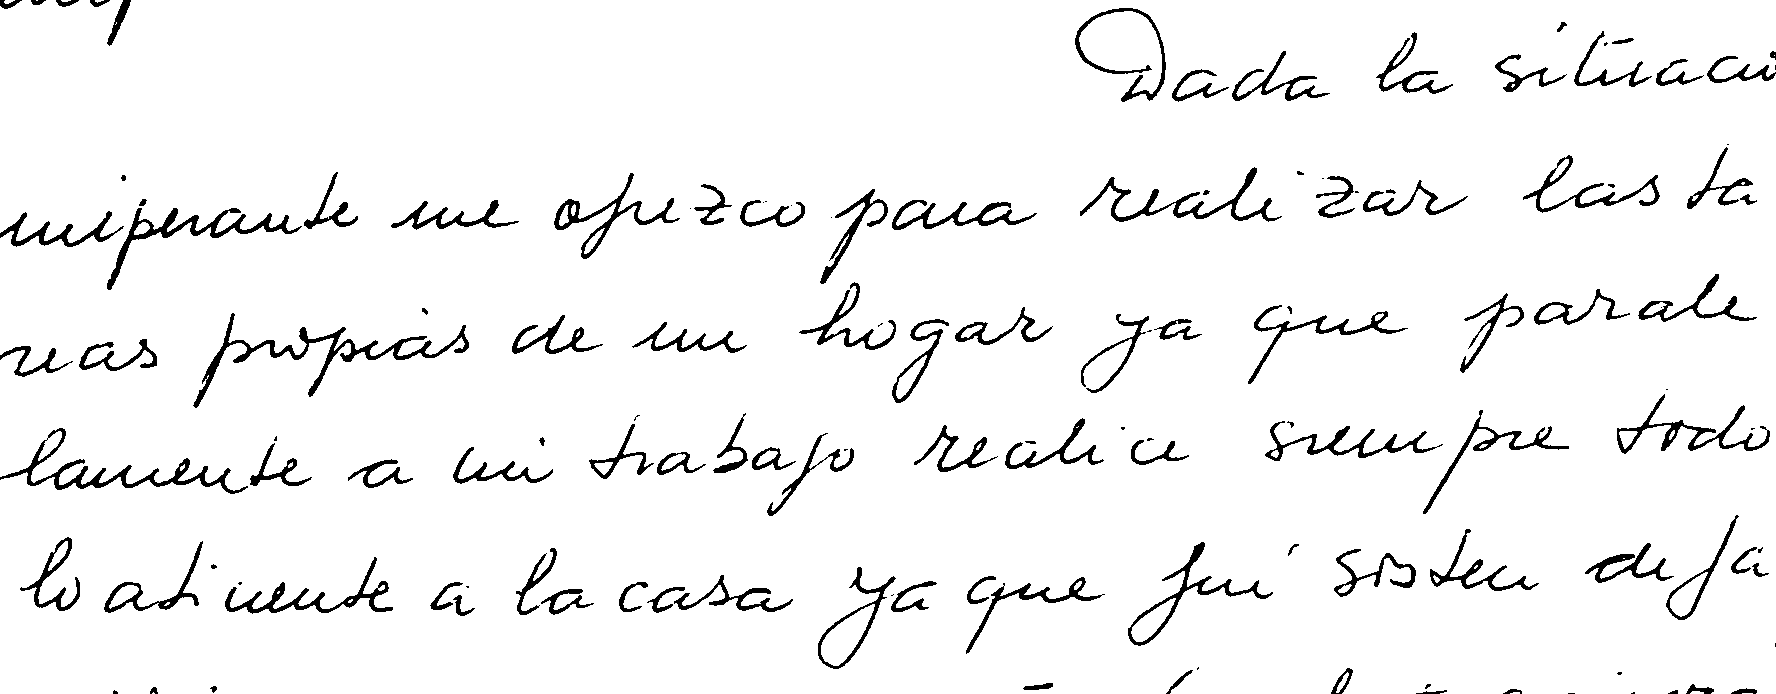 Dada la situaci
imperante me ofrezco para realizar las ta
reas propias de un hogar ya que parale
lamente a mi trabajo realicé siempre todo
lo atinente a la casa ya que fuí sosten de fa